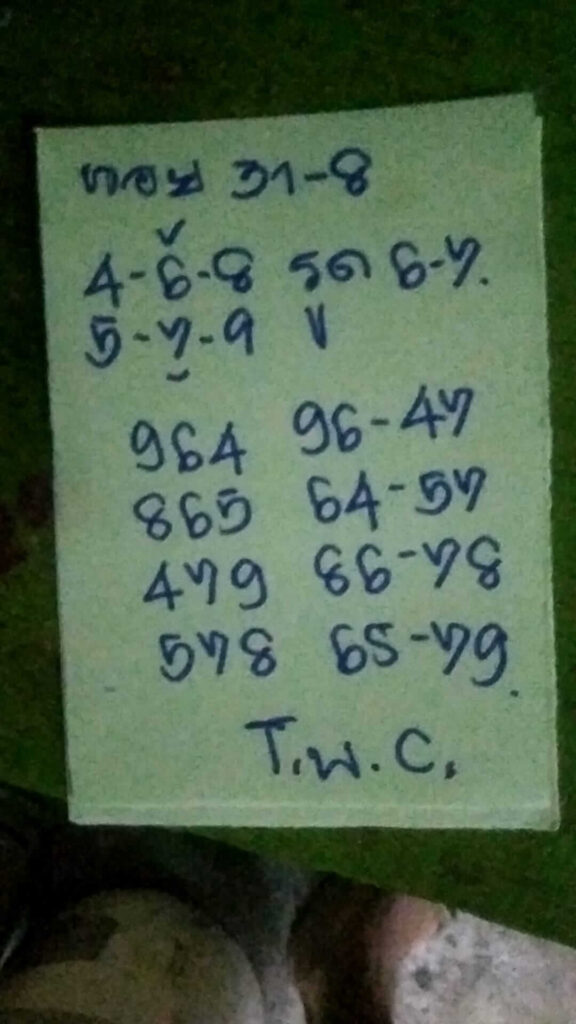 หวย 31-8
4-6-8 รูด 6-7.
5-7-9
964 96-47
865 64-57
479 86-78
578 65-79.
T.พ.C.